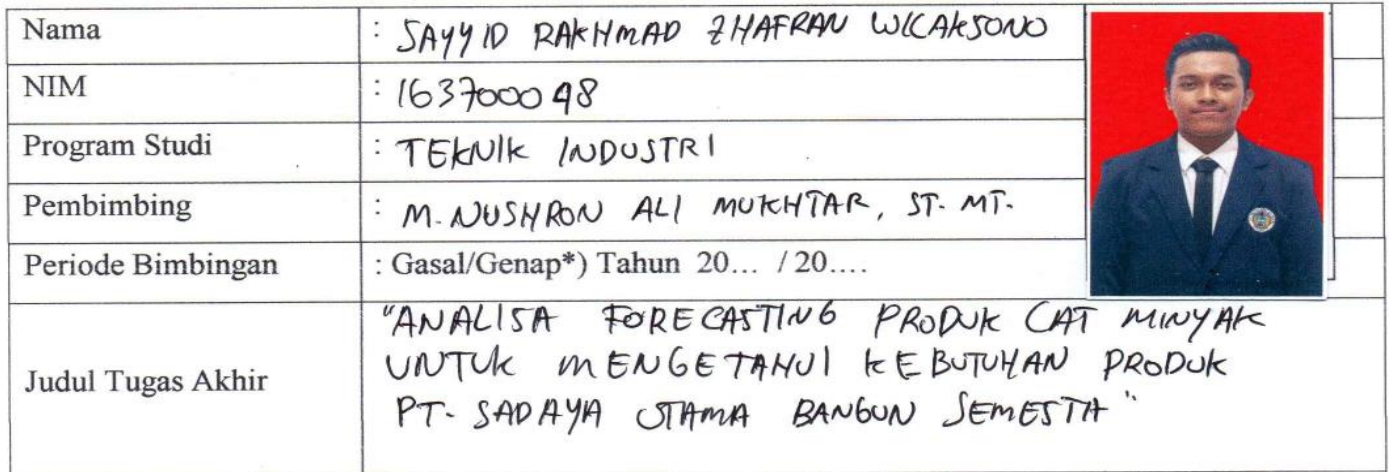 Nama : SAYYID RAKHMAD ZHAFRAN WICAKSONO
NIM : 1637000098
Program Studi : TEKNIK INDUSTRI
Pembimbing : M. NUSHRON ALI MUKHTAR, ST. MT.
Periode Bimbingan : Gasal/Genap*) Tahun 20... / 20....
Judul Tugas Akhir
"ANALISA FORECASTING PRODUK CAT MINYAK
UNTUK MENGETAHUI KEBUTUHAN PRODUK
PT. SADAYA UTAMA BANGUN SEMESTA"